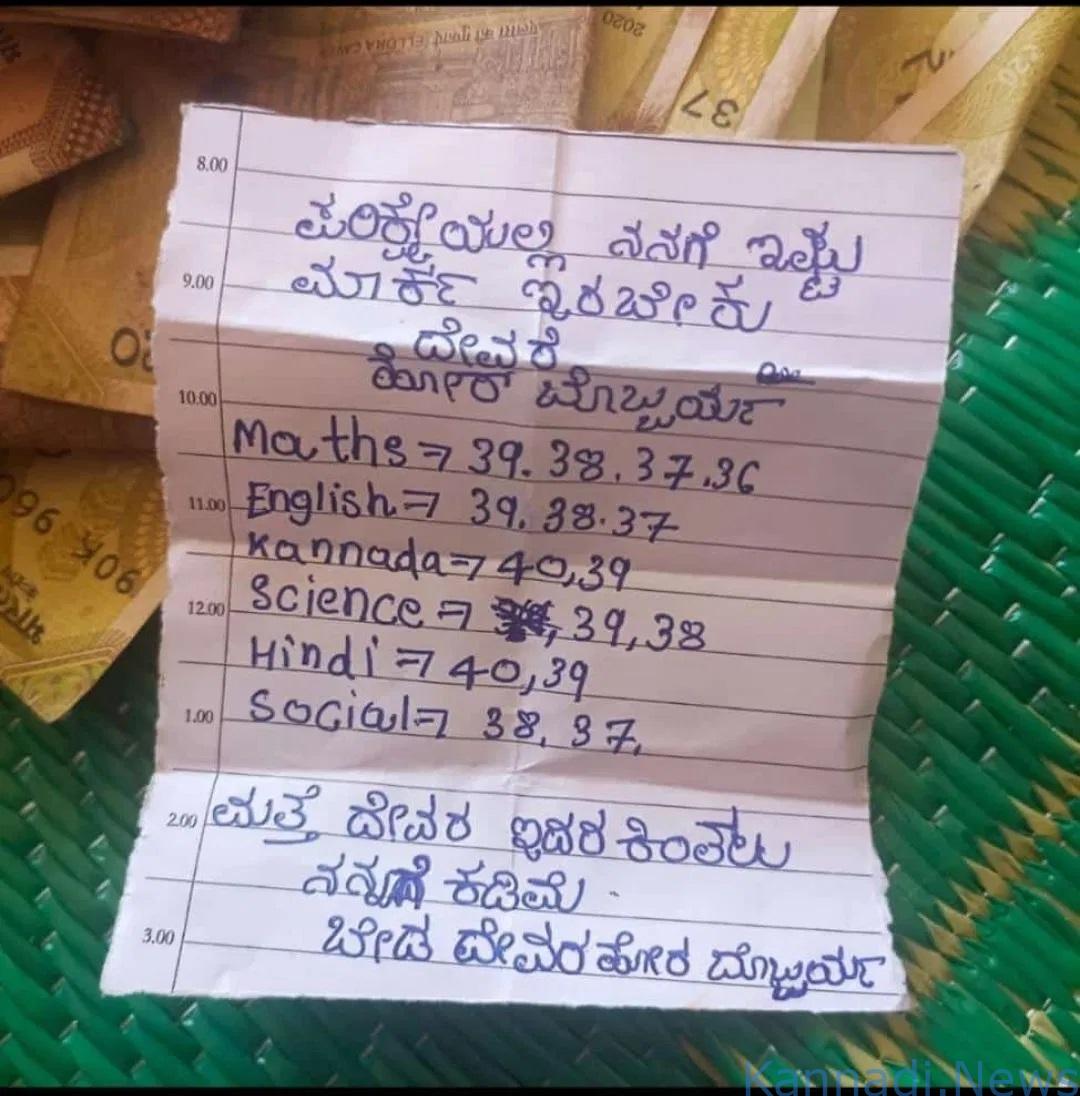 ELLORA CAVES
2020
37
20
8.00
ಪರಿಕ್ಷೇಯಲ್ಲಿ ನನಗೆ ಇಷ್ಟು
9.00 ಮಾರ್ಕ್ ಇರಬೇಕು
ದೇವರೆ
10.00 ಹೋರ್ ಬೊಬ್ಬರ್ಯ
Maths ⇒ 39. 38. 37. 36
11.00 English ⇒ 39. 38. 37
Kannada ⇒ 40, 39
12.00 Science ⇒ , 39, 38
Hindi ⇒ 40, 39
1.00 Social ⇒ 38, 37,
2.00 ಮತ್ತೆ ದೇವರ ಇದರ ಕಿಂತಲು
ಕಡಿಮೆ
3.00 ಬೇಡ ದೇವರ ಹೋರ ಬೊಬ್ಬರ್ಯ
Kannadi.News